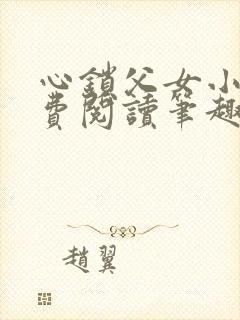 心鎖父女小
費閱讀筆趣
趙翼